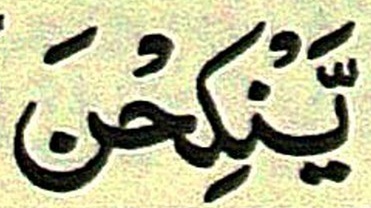 يَّنْكِحْنَ